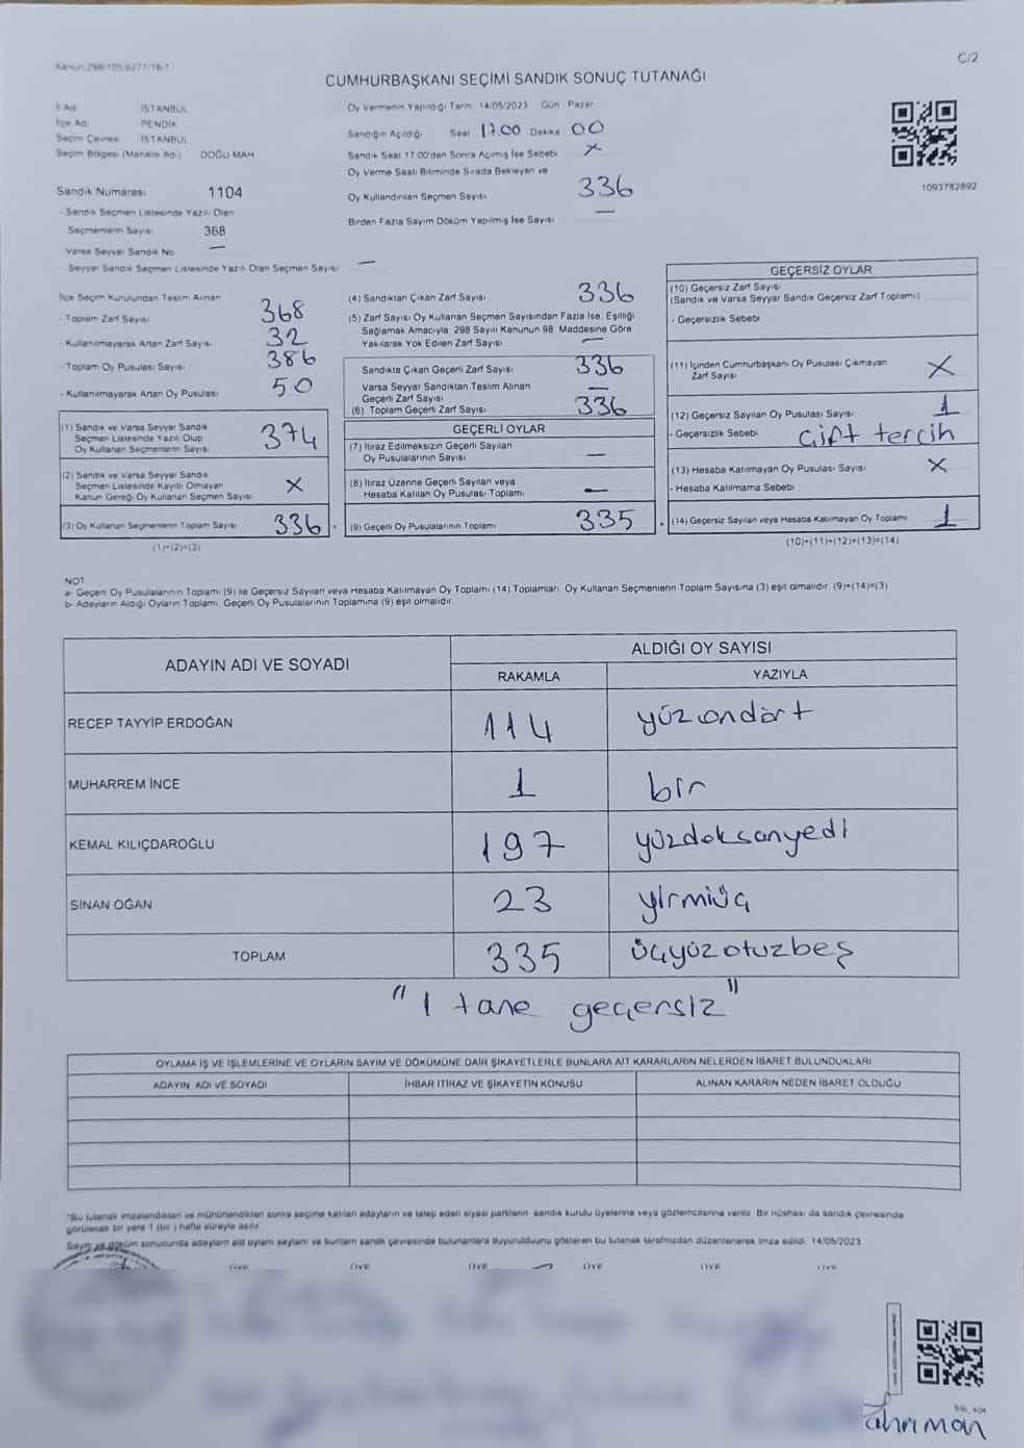 Kanun:298/105/6271/18-1
C/2
CUMHURBAŞKANI SEÇİMİ SANDIK SONUÇ TUTANAĞI
İl Adı: İSTANBUL
İlçe Adı: PENDİK
Seçim Çevresi: İSTANBUL
Seçim Bölgesi (Mahalle Adı) DOĞU MAH
Sandık Numarası 1104
- Sandık Seçmen Listesinde Yazılı Olan
Seçmenlerin Sayısı 368
Varsa Seyyar Sandık No —
Seyyar Sandık Seçmen Listesinde Yazılı Olan Seçmen Sayısı —
Oy Vermenin Yapıldığı Tarih: 14/05/2023 Gün: Pazar
Sandığın Açıldığı Saat 17.00 Dakika 00
Sandık Saat 17:00'den Sonra Açılmış İse Sebebi X
Oy Verme Saati Bitiminde Sırada Bekleyen ve
Oy Kullandırılan Seçmen Sayısı 336
Birden Fazla Sayım Döküm Yapılmış İse Sayısı —
1093782892
İlçe Seçim Kurulundan Teslim Alınan
- Toplam Zarf Sayısı 368
- Kullanılmayarak Artan Zarf Sayısı 32
- Toplam Oy Pusulası Sayısı 386
- Kullanılmayarak Artan Oy Pusulası 50
(1) Sandık ve Varsa Seyyar Sandık
Seçmen Listesinde Yazılı Olup
Oy Kullanan Seçmenlerin Sayısı 374
(2) Sandık ve Varsa Seyyar Sandık
Seçmen Listesinde Kayıtlı Olmayan
Kanun Gereği Oy Kullanan Seçmen Sayısı X
(3) Oy Kullanan Seçmenlerin Toplam Sayısı 336
(1)+(2)=(3)
(4) Sandıktan Çıkan Zarf Sayısı 336
(5) Zarf Sayısı Oy Kullanan Seçmen Sayısından Fazla İse, Eşitliği
Sağlamak Amacıyla 298 Sayılı Kanunun 98. Maddesine Göre
Yakılarak Yok Edilen Zarf Sayısı —
Sandıkta Çıkan Geçerli Zarf Sayısı 336
Varsa Seyyar Sandıktan Teslim Alınan
Geçerli Zarf Sayısı —
(6) Toplam Geçerli Zarf Sayısı 336
GEÇERLİ OYLAR
(7) İtiraz Edilmeksizin Geçerli Sayılan
Oy Pusulalarının Sayısı —
(8) İtiraz Üzerine Geçerli Sayılan veya
Hesaba Katılan Oy Pusulası Toplamı —
(9) Geçerli Oy Pusulalarının Toplamı 335
GEÇERSİZ OYLAR
(10) Geçersiz Zarf Sayısı
(Sandık ve Varsa Seyyar Sandık Geçersiz Zarf Toplamı)
- Geçersizlik Sebebi
(11) İçinden Cumhurbaşkanı Oy Pusulası Çıkmayan
Zarf Sayısı X
(12) Geçersiz Sayılan Oy Pusulası Sayısı 1
- Geçersizlik Sebebi Çift tercih
(13) Hesaba Katılmayan Oy Pusulası Sayısı X
- Hesaba Katılmama Sebebi
(14) Geçersiz Sayılan veya Hesaba Katılmayan Oy Toplamı 1
(10)+(11)+(12)+(13)=(14)
NOT
a- Geçerli Oy Pusulalarının Toplamı (9) ile Geçersiz Sayılan veya Hesaba Katılmayan Oy Toplamı (14) Toplamları, Oy Kullanan Seçmenlerin Toplam Sayısına (3) eşit olmalıdır. (9)+(14)=(3)
b- Adayların Aldığı Oyların Toplamı, Geçerli Oy Pusulalarının Toplamına (9) eşit olmalıdır.
ADAYIN ADI VE SOYADI
ALDIĞI OY SAYISI
RAKAMLA YAZIYLA
RECEP TAYYİP ERDOĞAN 114 yüzondört
MUHARREM İNCE 1 bir
KEMAL KILIÇDAROĞLU 197 yüzdoksanyedi
SİNAN OĞAN 23 yirmiüç
TOPLAM 335 üçyüzotuzbeş
"1 tane geçersiz"
OYLAMA İŞ VE İŞLEMLERİNE VE OYLARIN SAYIM VE DÖKÜMÜNE DAİR ŞİKAYETLERLE BUNLARA AİT KARARLARIN NELERDEN İBARET BULUNDUKLARI
ADAYIN ADI VE SOYADI İHBAR İTİRAZ VE ŞİKAYETİN KONUSU ALINAN KARARIN NEDEN İBARET OLDUĞU
"Bu tutanak imzalandıktan ve mühürlendikten sonra seçime katılan adayların ve talep eden siyasi partilerin sandık kurulu üyelerine veya gözlemcilerine verilir. Bir nüshası da sandık çevresinde
görülecek bir yere 1 (bir) hafta süreyle asılır.
Sayım ve döküm sonucunda adayların aldı oyların sayıları ve bunların sandık çevresinde bulunanlara duyurulduğunu gösteren bu tutanak tarafımızdan düzenlenerek imza edildi. 14/05/2023
ÜYE ÜYE ÜYE ÜYE ÜYE ÜYE
ahriman